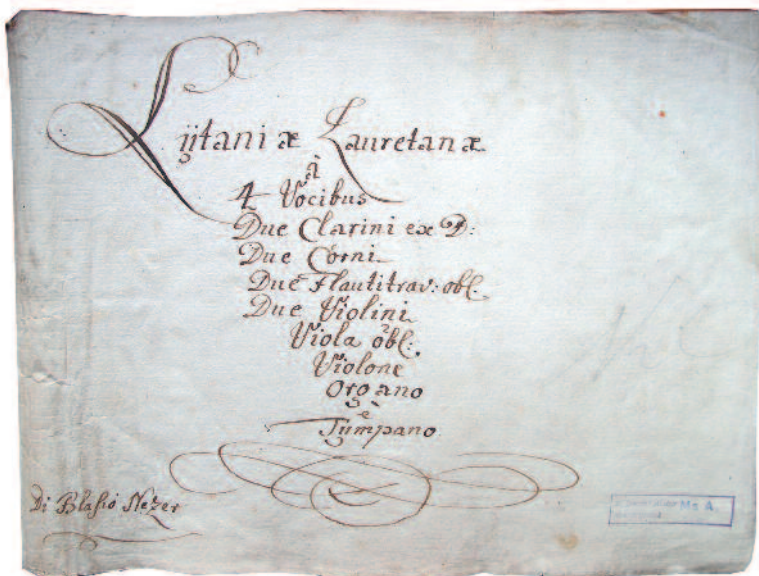 Lÿtaniæ Lauretanæ
à
4 Vocibus
Due Clarini ex D:
Due Corni
Due Flautitrav: obl:
Due Violini
Viola obl:
Violone
Organo
è
Tÿmpano
Di Blasio Nezer
Ms A.